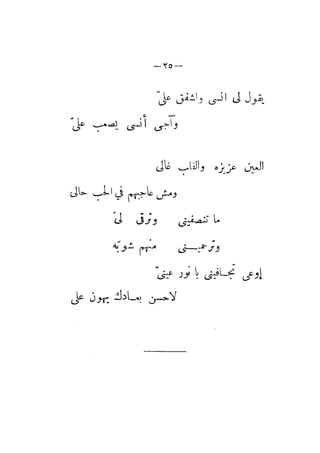 — ٢٥ —
يقول لى انسى واشفق علىّ
وآجى أنسى يصعب علىّ
العين عزيزه والقلب غالى
ومش عاجبهم فى الحب حالى
ما تنصفينى وترقى لىّ
وترحمينى منهم شويّه
إوعى تجافينى يا نور عينىّ
لاحسن بعادك يهون على